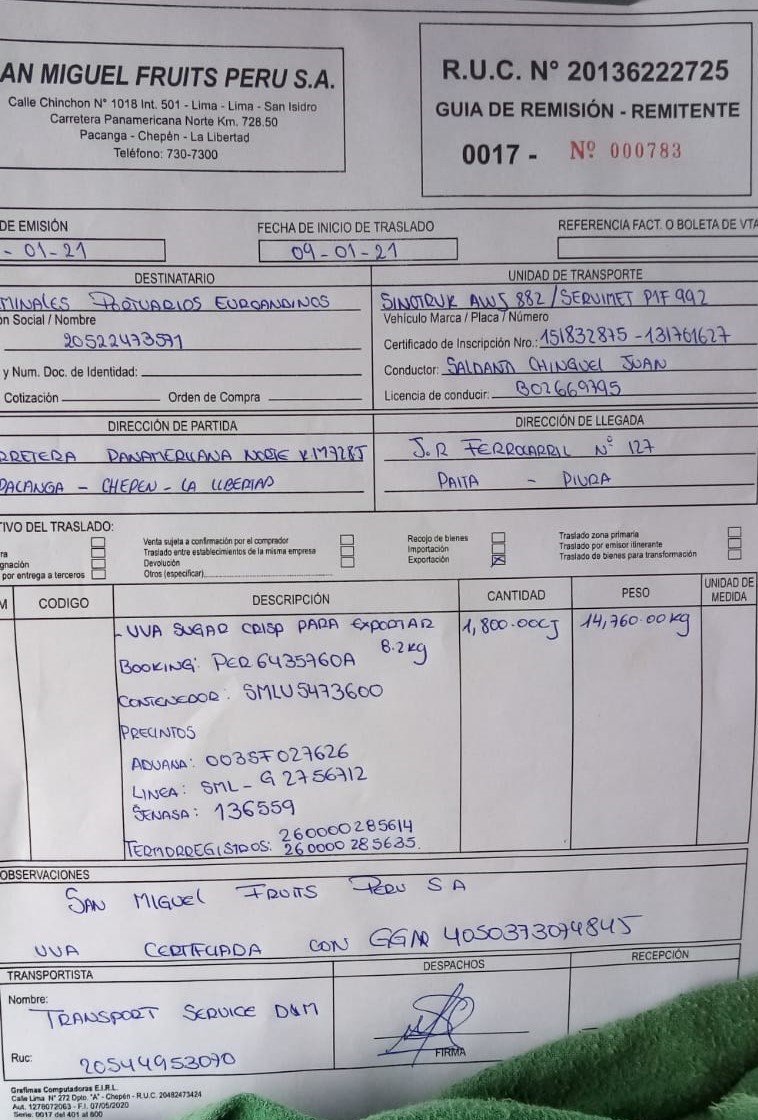 AN MIGUEL FRUITS PERU S.A.
Calle Chinchon N° 1018 Int. 501 - Lima - Lima - San Isidro
Carretera Panamericana Norte Km. 728.50
Pacanga - Chepén - La Libertad
Teléfono: 730-7300
R.U.C. N° 20136222725
GUIA DE REMISIÓN - REMITENTE
0017 - Nº 000783
DE EMISIÓN
- 01-21
FECHA DE INICIO DE TRASLADO
09-01-21
REFERENCIA FACT. O BOLETA DE VTA
DESTINATARIO
MINALES PORTUARIOS EUROANDINOS
on Social / Nombre
20522473571
y Num. Doc. de Identidad:
Cotización Orden de Compra
UNIDAD DE TRANSPORTE
SINOTRUK AWS 882 / SERVIMET P1F 992
Vehículo Marca / Placa / Número
Certificado de Inscripción Nro.: 151832875 - 131761627
Conductor: SALDAÑA CHINGUEL JUAN
Licencia de conducir: B02669795
DIRECCIÓN DE PARTIDA
RRETERA PANAMERICANA NORTE KM 728.5
PACANGA - CHEPEN - LA LIBERTAD
DIRECCIÓN DE LLEGADA
J.R FERROCARRIL Nº 127
PAITA - PIURA
TIVO DEL TRASLADO:
ra
gnación
por entrega a terceros
Venta sujeta a confirmación por el comprador
Traslado entre establecimientos de la misma empresa
Devolución
Otros (especificar)
Recojo de bienes
Importación
Exportación
Traslado zona primaria
Traslado por emisor itinerante
Traslado de bienes para transformación
M CODIGO DESCRIPCIÓN CANTIDAD PESO UNIDAD DE MEDIDA
- UVA SUGAR CRISP PARA EXPORTAR 1,800.00CJ 14,760.00kg
8.2kg
BOOKING: PER6435760A
CONTENEDOR: SMLU5473600
PRECINTOS
ADUANA: 003SF027626
LINEA: SML - G2756712
SENASA: 136559
TERMORREGISTROS: 260000285614
260000285635.
OBSERVACIONES
SAN MIGUEL FRUITS PERU S A
UVA CERTIFICADA CON GGN 4050373074845
TRANSPORTISTA
Nombre:
TRANSPORT SERVICE D&M
Ruc: 20544953070
DESPACHOS
FIRMA
RECEPCIÓN
Grafimas Computadoras E.I.R.L.
Calle Lima N° 272 Dpto. "A" - Chepén - R.U.C. 20482473424
Aut. 1278072063 - F.I. 07/05/2020
Serie: 0017 del 401 al 800